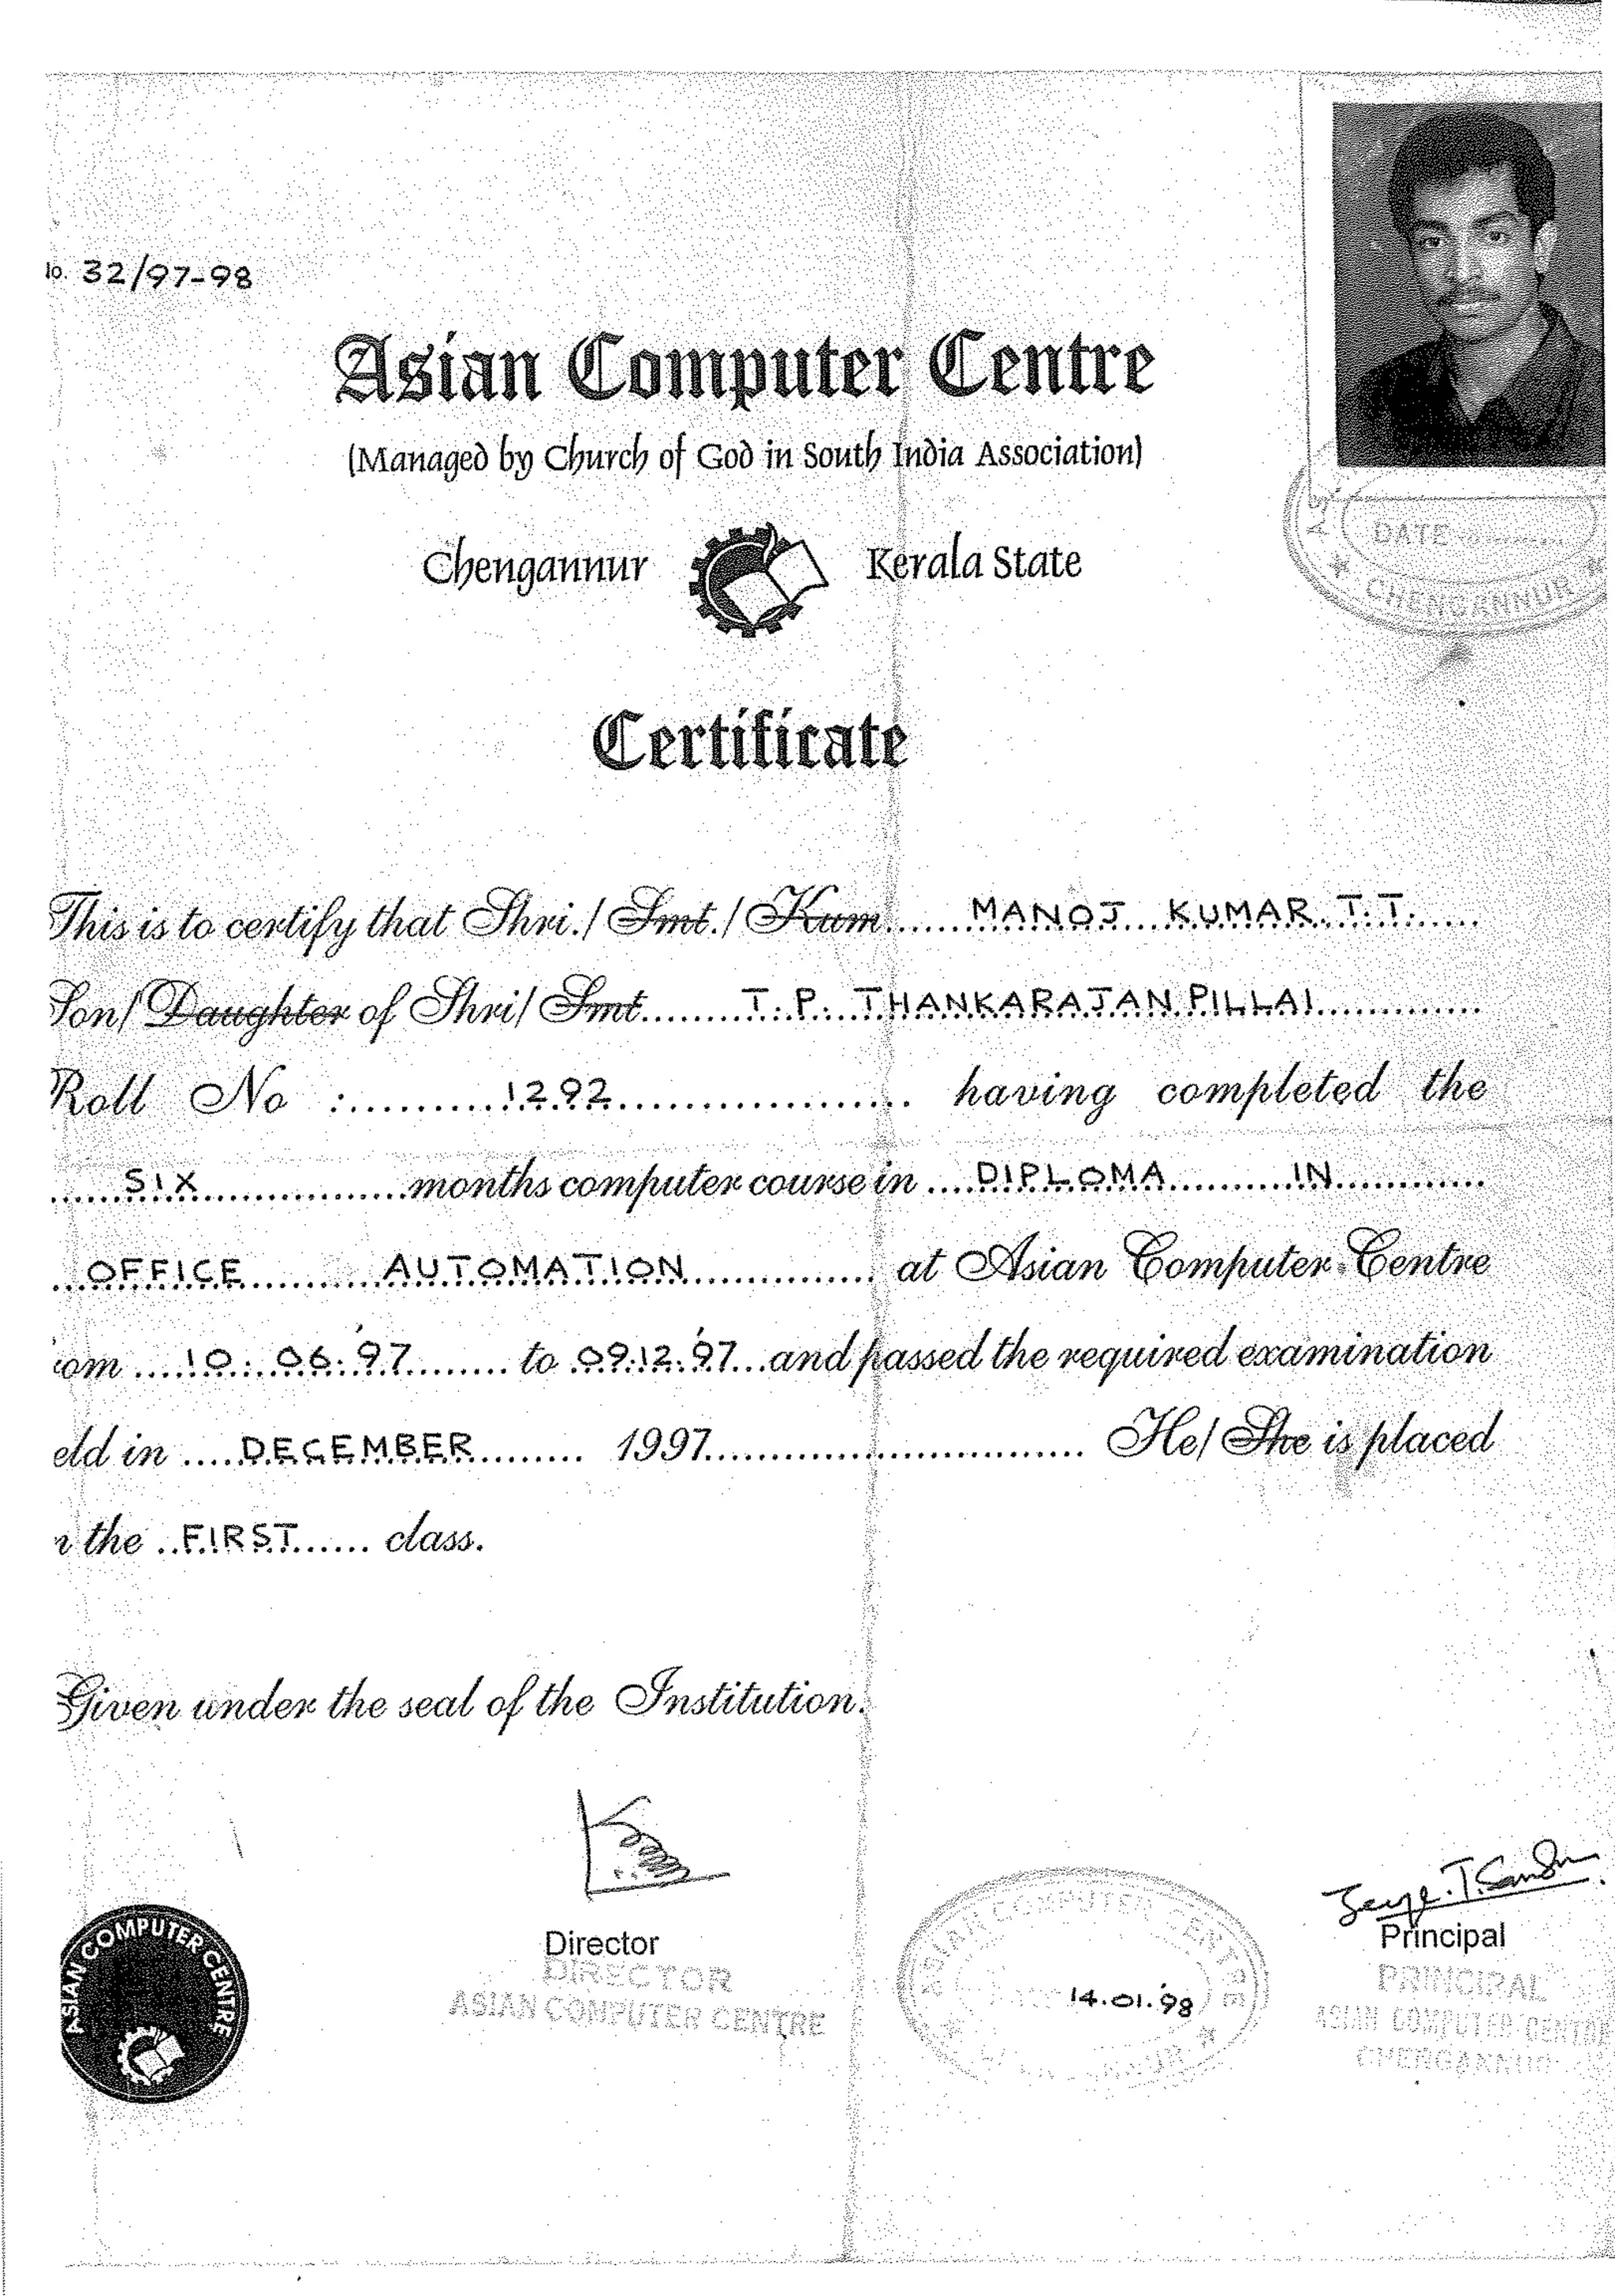 No. 32/97-98
Asian Computer Centre
(Managed by Church of God in South India Association)
Chengannur Kerala State
DATE
CHENGANNUR
Certificate
This is to certify that Shri./Smt./Kum. MANOJ KUMAR. T.T.
Son/Daughter of Shri/Smt. T. P. THANKARAJAN PILLAI
Roll No : 1292 having completed the
SIX months computer course in DIPLOMA IN
OFFICE AUTOMATION at Asian Computer Centre
om 10. 06. '97 to 09.12.'97 and passed the required examination
eld in DECEMBER 1997 He/She is placed
the FIRST class.
Given under the seal of the Institution.
Director
DIRECTOR
ASIAN COMPUTER CENTRE
ASIAN COMPUTER CENTRE
ASIAN COMPUTER CENTRE
14.01.'98
Principal
PRINCIPAL
ASIAN COMPUTER CENTRE
CHENGANNUR